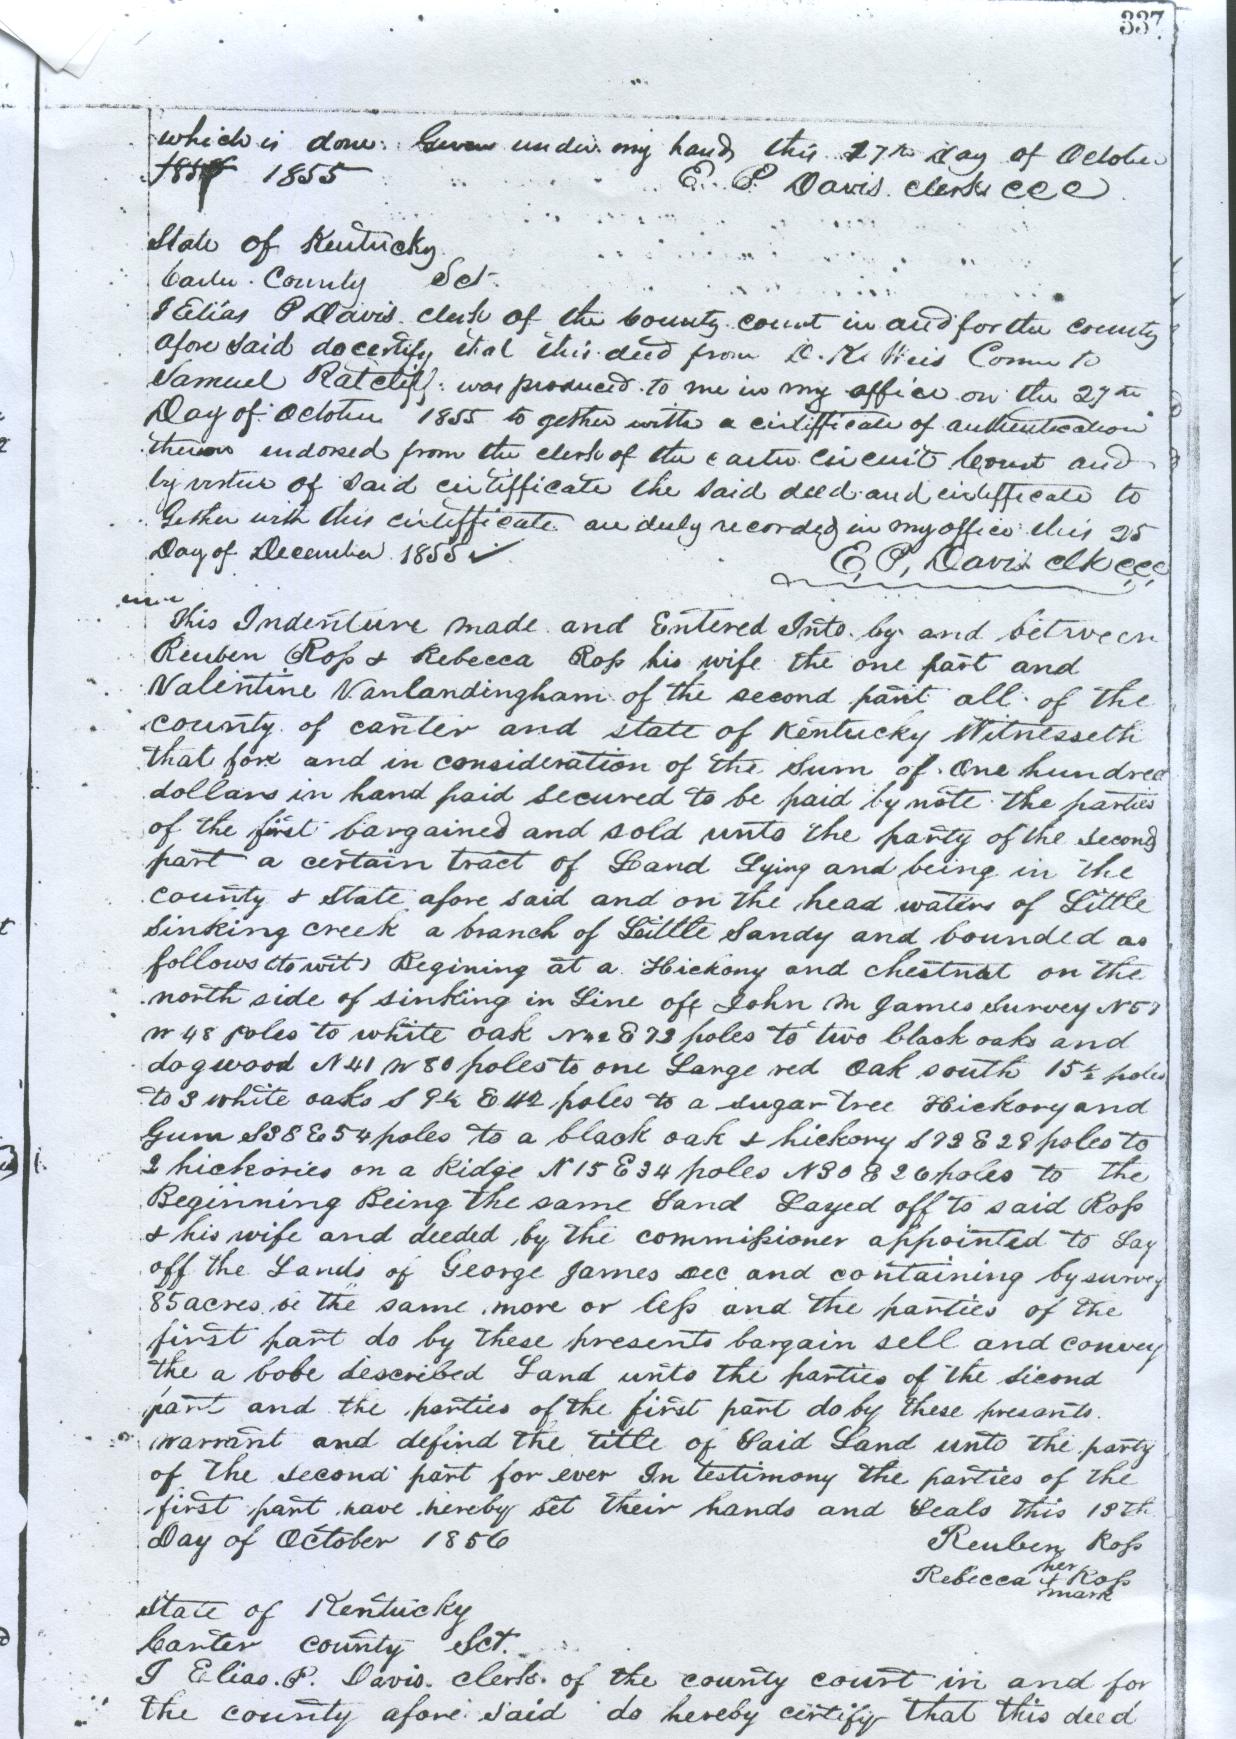 337
which is done. Given under my hand this 27th Day of October
1855 E. P. Davis. clerk CCC
State of Kentucky
Carter County Sct.
I Elias P Davis clerk of the County court in and for the county
afore said do certify that this deed from D. K. Weis Comr to
Samuel Ratcliff was produced to me in my office on the 27th
Day of October 1855 to gether with a certifficate of authentication
thereon endorsed from the clerk of the carter circuit Court and
by virtue of said certifficate the said deed and certifficate to
Gether with this certifficate are duly recorded in my office this 25
Day of December 1855 E, P, Davis clk CCC,
This Indenture made and Entered Into by and between
Reuben Ross & Rebecca Ross his wife the one part and
Valentine Vanlandingham of the second part all of the
county of carter and state of Kentucky Witnesseth
that for and in consideration of the sum of One hundred
dollars in hand paid secured to be paid by note the parties
of the first bargained and sold unto the party of the second
part a certain tract of Land Lying and being in the
county & State afore said and on the head waters of Little
Sinking creek a branch of Little Sandy and bounded as
follows (to wit) Begining at a Hickory and chestnut on the
north side of sinking in Line of John M James Survey N 57
W 48 poles to white oak N 42 E 73 poles to two black oaks and
dogwood N 41 W 80 poles to one Large red Oak south 15½ poles
to 3 white oaks S 9½ E 42 poles to a sugar tree Hickory and
Gum S 38 E 54 poles to a black oak & hickory S 72 E 28 poles to
2 hickories on a Ridge N 15 E 34 poles N 30 E 26 poles to the
Beginning Being the same Land Layed off to said Ross
& his wife and deeded by the commissioner appointed to Lay
off the Lands of George James dec and containing by survey
85 acres be the same more or less and the parties of the
first part do by these presents bargain sell and convey
the a bobe described Land unto the parties of the second
part and the parties of the first part do by these presants
warrant and defind the title of Said Land unto the party
of the second part for ever In testimony the parties of the
first part have hereby set their hands and Seals this 13th
Day of October 1856 Reuben Ross
her
Rebecca + Ross
mark
State of Kentucky
Carter county Sct.
I Elias. P. Davis. clerk. of the county court in and for
the county afore said do hereby certify that this deed